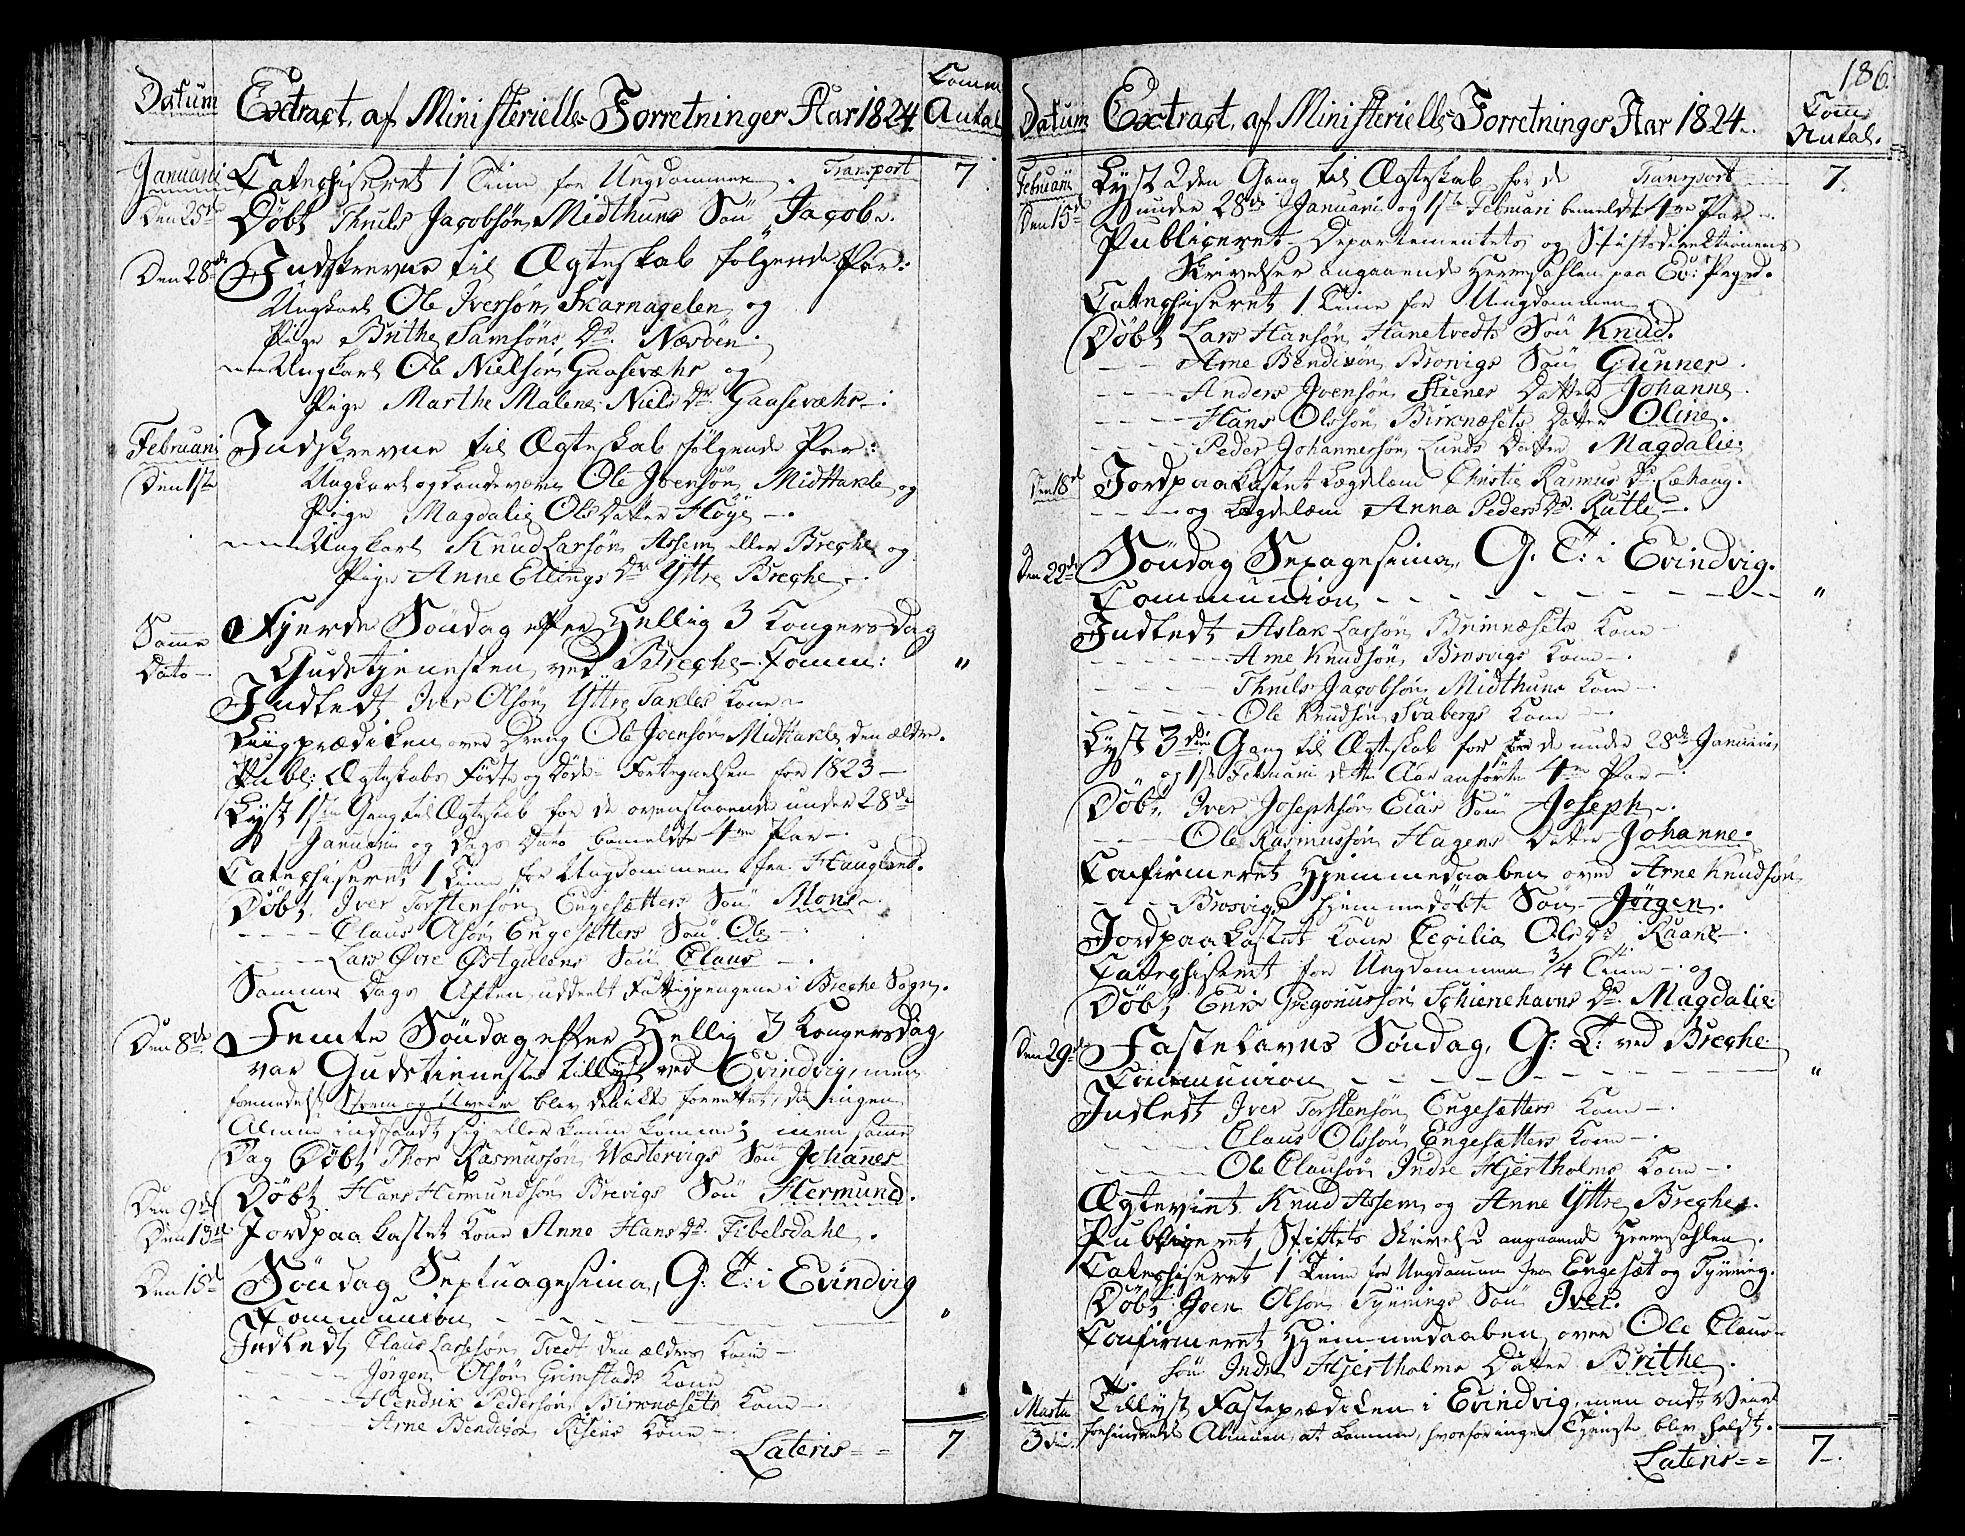 Datum
Extract, af Ministerielle Forretninger Aar 1824
Comm.
Antal
Januarii
Catechiseret 1 Time for Ungdommen.
Transport
7
Den 25de
Døbt Thuls Jacobsøn Midthuns Søn Jacob.
Den 28de
Indskrevne til Ægteskab følgende Par:
Ungkarl Ole Iversøn Skarnagelen og
Pige Brithe Samsøns Dr. Nærøen.
Ungkarl Ole Nielsøn Gaasevæhr og
Pige Marthe Malene Niels Dr. Gaasevæhr
Februarii
Indskrevne til Ægteskab følgende Par:
Den 1ste
Ungkarl og Landeværn Ole Joensøn MidtTakle og
Pige Magdalie Ols Datter Høye
Ungkarl Knud Larsøn Assem eller Breche og
Pige Anne Ellings Dr Yttre Breche.
Samme
Dato
Fjerde Søndag efter Hellig 3 Kongers Dag
Gudstjenesten ved Breche. Comm:
"
Indledt Iver Olsøn Yttre Takles Kone
Liigprædiken over Dreng Ole Joensøn MidtTakle den ældre.
Publ: Ægteskabs Fødte og Døde Fortegnelsen for 1823
Lyst 1ste Gang til Ægteskab for de ovenstaaende under 28de
Januarii og Dags Dato bemeldte 4re Par
Catechiseret 1 Time for Ungdommen fra Haugland.
Døbt Iver Torstensøn Engesætters Søn Mons
Claus Olsøn Engesætters Søn Ole
Lars Øvre Østgulens Søn Claus
Samme Dags Aften uddeelt Fattigpengene i Breche Sogn.
Den 8de
Femte Søndag efter Hellig 3 Kongers Dag
var Gudstieneste tillyst ved Evindvig, men
formedelst Storm og Uveir blev det ikke forrettet, da ingen
Almue indfandt sig eller kunne komme; men samme
Dag Døbt Thor Rasmussøn Wæstervigs Søn Johanes
Den 9de
Døbt Hans Hermundsøn Brevigs Søn Hermund.
Den 13de
Jordpaakastet Kone Anne Hans Dr. Tibelsdahl.
Den 15de
Søndag Septuagesima, G: T: i Evindvig
Communion
"
Indledt Claus Larssøn Tvedt den ældres Kone
Jørgen Olsøn Grimstads Kone
Hendrik Pedersøn Birknæsets Kone
Arne Bendixøn Risens Kone
Lateris
7
186.
Datum
Extract, af Ministerielle Forretninger Aar 1824.
Com:
Antal.
Februarii
Lyst 2den Gang til Ægteskab for de
Transport
7.
Den 15de
under 28de Januarii og 1ste Februarii bemeldte 4re Par
Publiceret Departementets og Stiftsdirektionens
Skrivelser angaaende Herresahlen paa Ev: Præg:
Catechiseret 1 Time for Ungdommen
Døbt Lars Hansøn Hanetvedts Søn Knud.
Arne Bendixøn Bronigs Søn Gunner.
Anders Joensøn Steenes Datter Johanne
Hans Olssøn Birknæsets Datter Oline.
Peder Johannersøn Lunds Datter Magdalie.
Den 18de
Jordpaakastet Lægdslem Christie Rasmus Dr. Læhaug.
og Lægdslem Anna Peders Dr. Rutle
Den 22de
Søndag Sexagesima, G. T: i Evindvig.
Communion
"
Indledt Aslak Larsøn Brimnæsets Kone
Arne Knudsøn Brosvigs Kone
Thuls Jacobsøn Midthuns Kone
Ole Knudsøn Svabergs Kone
Lyst 3die Gang til Ægteskab for de under 28de Januarii
og 1ste Februarii dette Aar anførte 4re Par
Døbt Iver Josephsøn Eides Søn Joseph.
Ole Rasmussøn Hagens Datter Johanne.
Confirmeret Hjemmedaaben over Arne Knudsøn
Brosvigs hjemmedøbte Søn Jörgen.
Jordpaakastet Kone Cecilia Ols Dr. Kaane
Catechiseret for Ungdommen 3/4 Time og
Døbt Enis Gregoriussøn Schienehavns Dr. Magdalie.
Den 29de
Fastelavns Søndag, G: T: ved Breche
Communion
"
Indledt Iver Torstensøn Engesætters Kone
Claus Olssøn Engesætters Kone
Ole Clausøn Indre Hjertholms Kone
Ægteviet Knud Assem og Anne Yttre Breche.
Publiceret Stiftets Skrivelse angaaende Herresahlen.
Catechiseret 1 Time for Ungdommen fra Engesæt og Tynning.
Døbt Joen Olsøn Tynnings Søn Iver.
Confirmeret Hjemmedaaben over Ole Claus-
søn Indre Hjertholms Datter Brithe
Martii
Tillyst Fasteprædiken i Evindvig, men ondt Veir
3die
forhindrede Almuen at komme, hvorfor ingen Tjeneste blev holdt.
Lateris
7